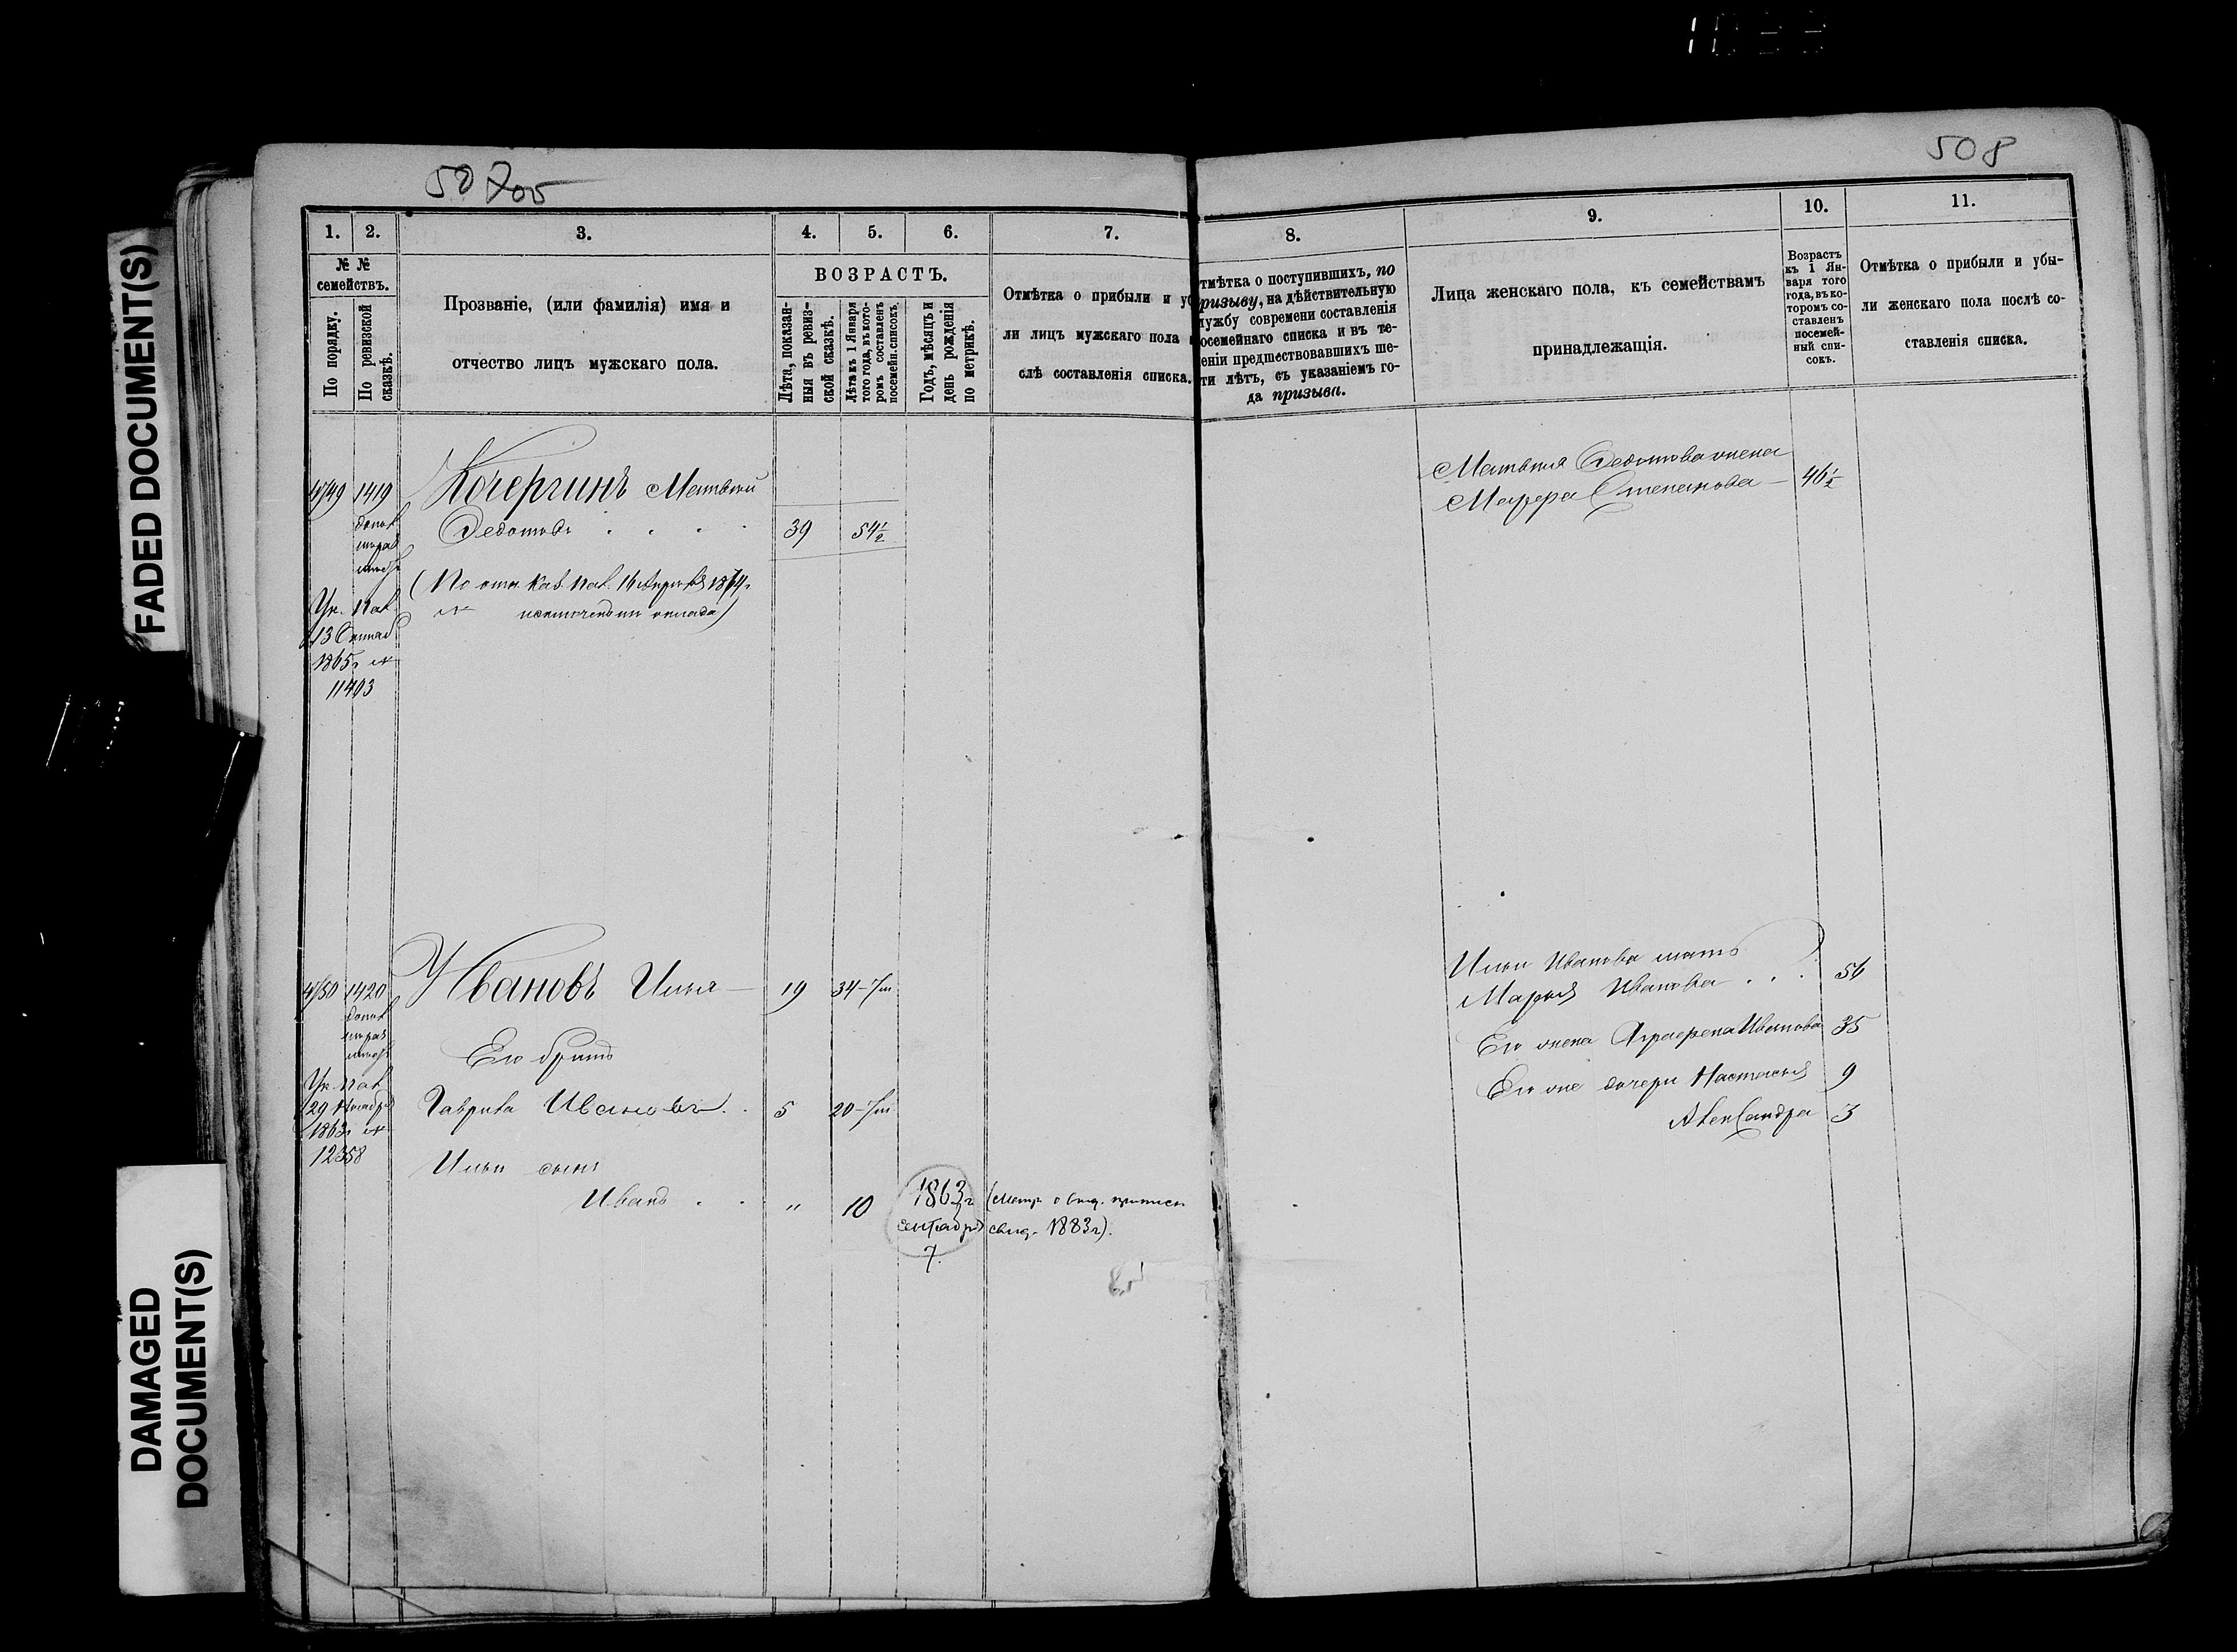 FADED DOCUMENT(S)
DAMAGED
DOCUMENT(S)
508
1.
2.
3.
4.
5.
6.
7.
8.
9.
10.
11.
№ №
семействъ.
По порядку.
По ревизской
сказкѣ.
Прозваніе, (или фамилія) имя и
отчество лицъ мужскаго пола.
ВОЗРАСТЪ.
Лѣта, показан-
ныя въ ревиз-
ской сказкѣ.
Лѣта къ 1 Января
того года, въ кото-
ромъ составленъ
посемейн. списокъ.
Годъ, мѣсяцъ и
день рожденія
по метрикѣ.
Отмѣтка о прибыли и уб
ли лицъ мужскаго пола
слѣ составленія списка.
тмѣтка о поступившихъ, по
ризыву, на дѣйствительную
лужбу современи составленія
осемейнаго списка и въ те-
еніи предшествовавшихъ ше-
ти лѣтъ, съ указаніемъ го-
да призыва.
Лица женскаго пола, къ семействамъ
принадлежащія.
Возрастъ
къ 1 Ян-
варя того
года, въ ко-
торомъ со-
ставленъ
посемей-
ный спи-
сокъ.
Отмѣтка о прибыли и убы-
ли женскаго пола послѣ со-
ставленія списка.
1419
Кочергинъ Матвей
Федотовъ
39
54 1/2
1865г №
11403
Матвея Федотова жена
Марфа Степанова
46 1/2
1420
Ивановъ Илья
19
34-7м
Его братъ
Гаврила Ивановъ
5
20-7м
1863г №
12358
Ильи сынъ
Иванъ
"
10
1863г
сентября
7.
свид. 1883г).
Ильи Иванова мать
Марья Иванова
56
Его жена Аграфена Иванова
35
Его же дочери Настасья
9
Александра
3